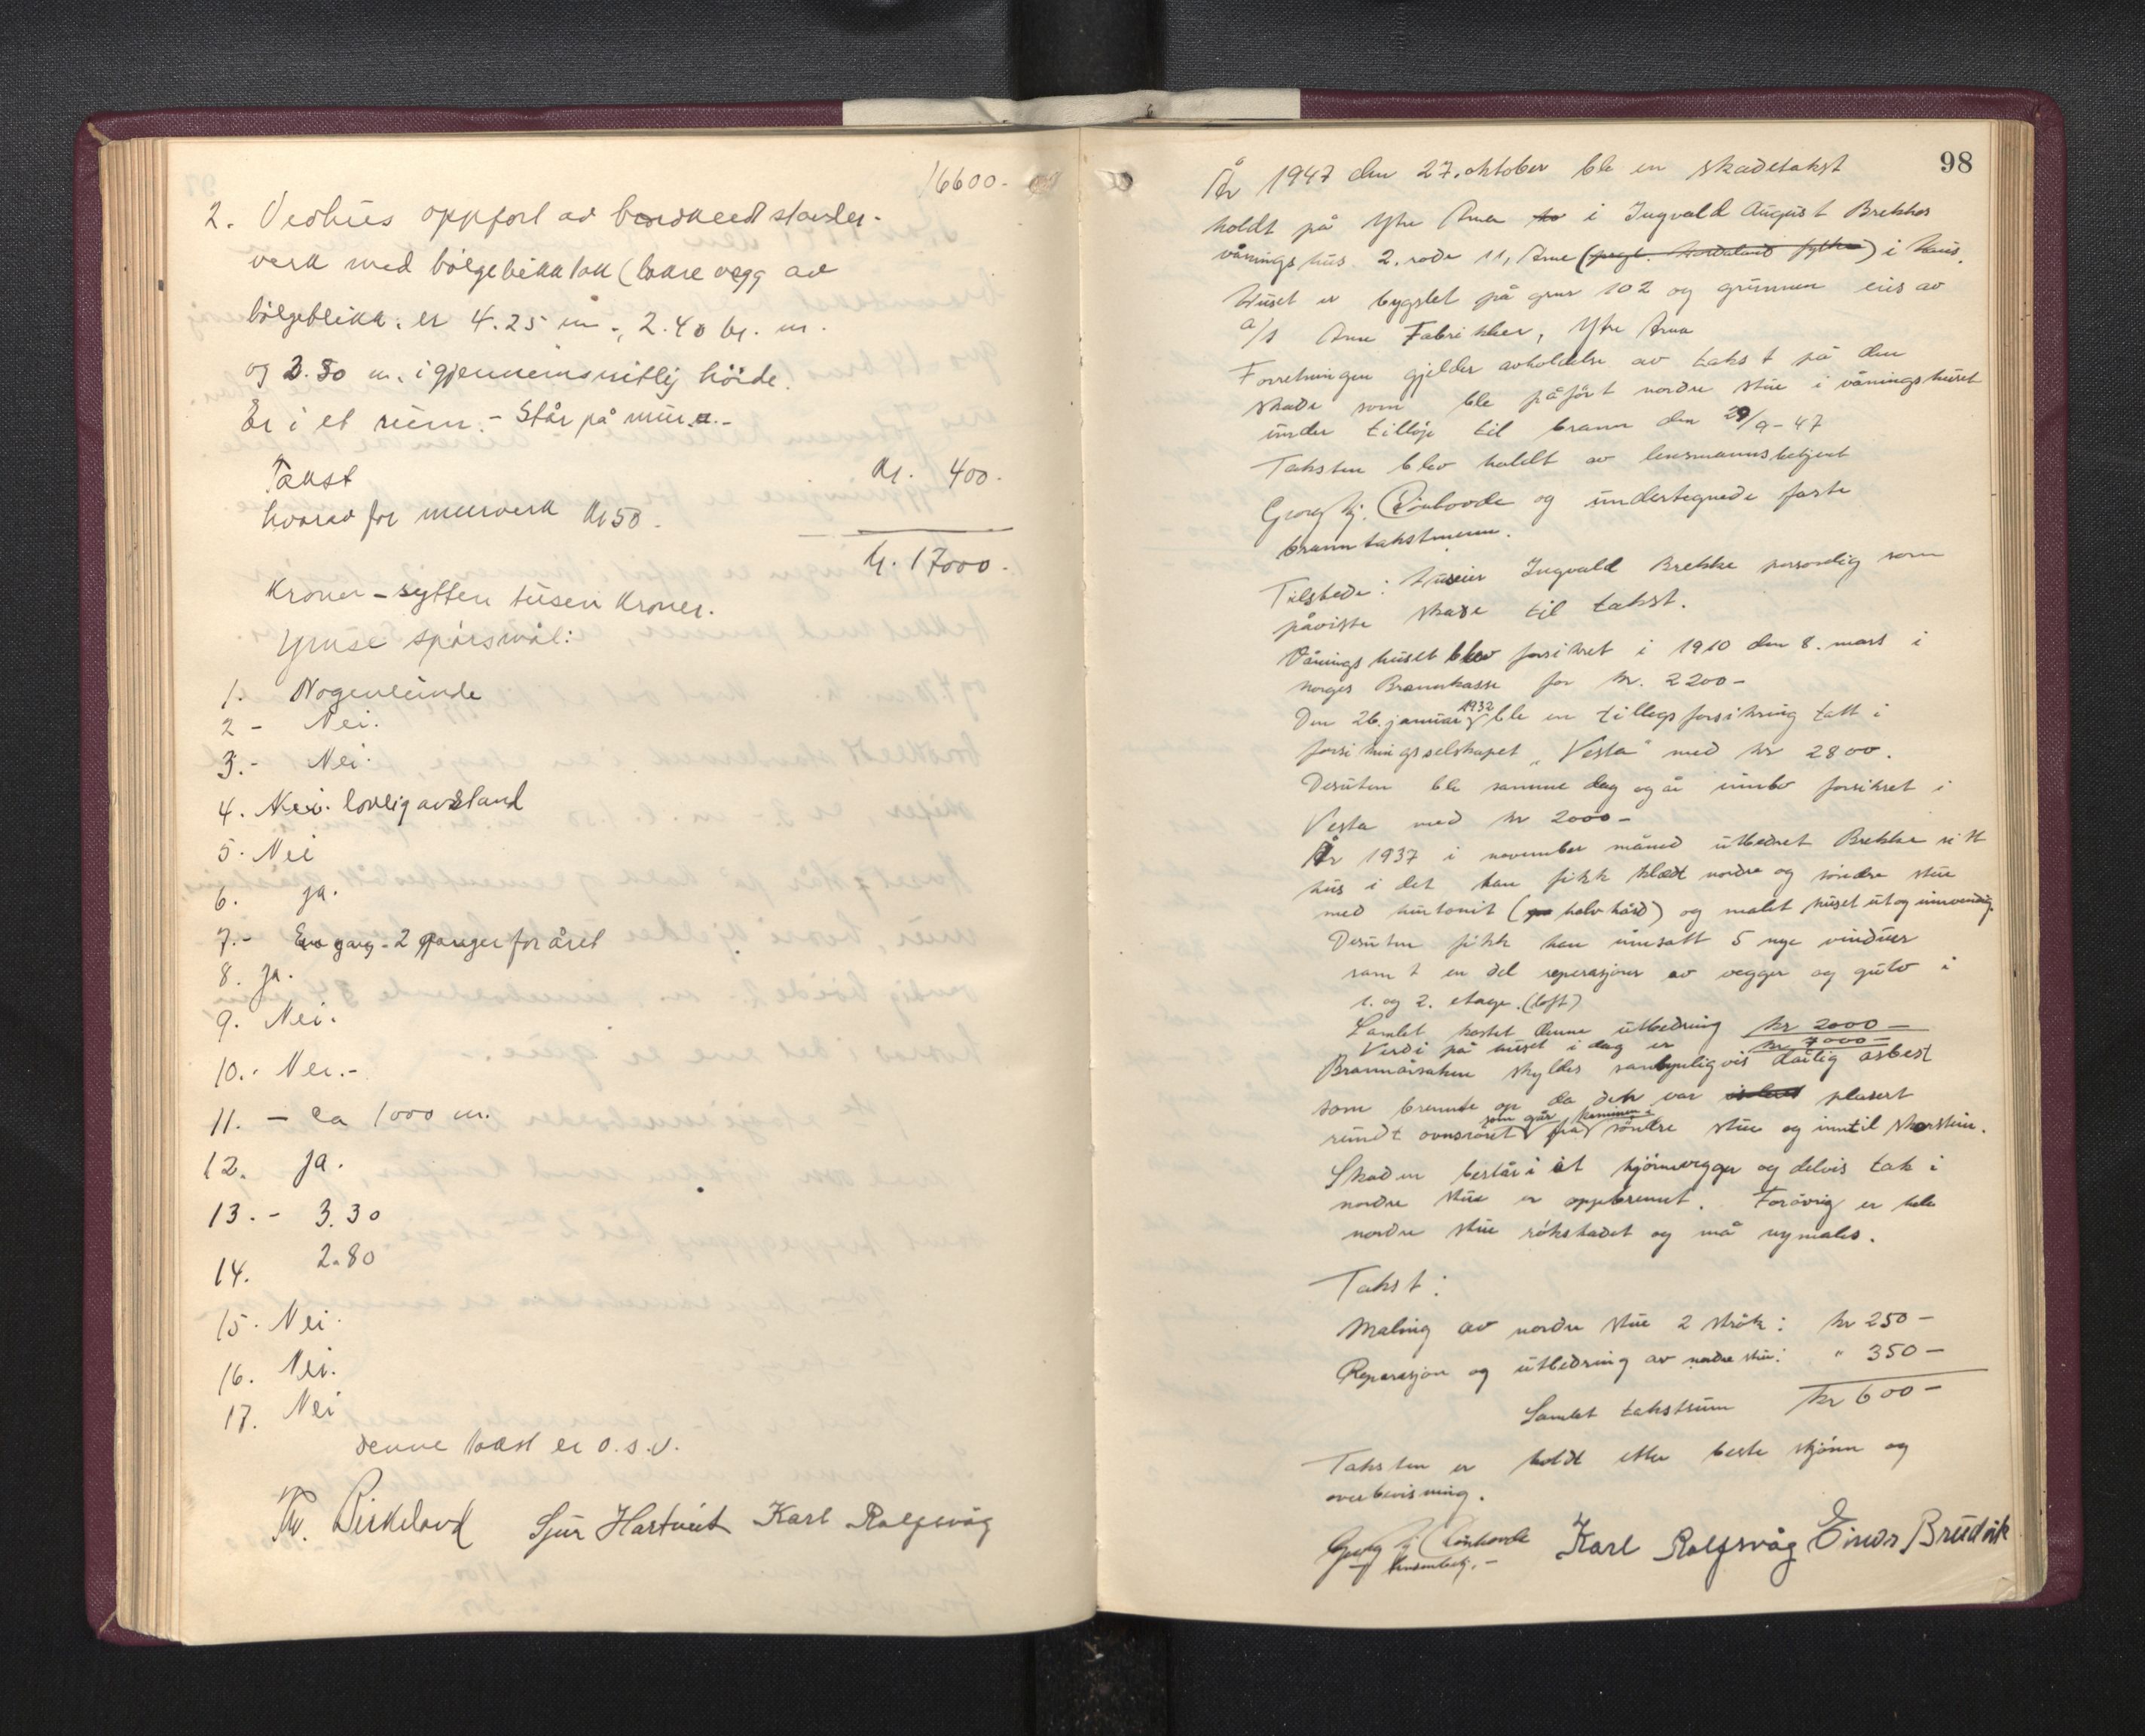 16600.-
2. Vedhus oppfört av bordkledt stander-
verk med bölgeblikktak (bakre vegg av
bölgeblikk. er 4.25 m., 2.40 br. m.
og 2.50 m. i gjennemsnitlig höide.
Er i et rum. - Står på mur. -
Takst kr. 400.-
hvorav for murverk kr 50.
kr. 17000.-
Kroner - sytten tusen kroner.
Ymse spörsmål:
1. Nogenlunde
2 - Nei.
3. - Nei.
4. Nei. lovlig avstand
5. Nei
6. ja.
7. - En gang - 2 ganger for året
8. ja.
9. Nei.
10. - Nei. -
11. - ca 1000 m.
12. ja.
13. - 3.30
14. 2.80
15. Nei.
16. Nei.
17. Nei
denne takst er o.s.v.
Th. Birkeland Sjur Hartveit Karl Rolfsvåg
98
År 1947 den 27. oktober ble en skadetakst
holdt på Ytre Arna i Ingvald August Brekkes
våningshus 2. rode 11, Arne (pregl. Hordaland fylke) i Haus.
Huset er bygslet på gnr 102 og grunnen eies av
a/s Arne Fabrikker, Ytre Arna
Forretningen gjelder avholdelse av takst på den
skade som ble påfört nordre stue i våningshuset
under tillöp til brann den 29/9-47
Taksten blev holdt av lensmannsbetjent
Georg Hj. Rönhovde og undertegnede faste
branntakstmenn.
Tilstede: Huseier Ingvald Brekke personlig som
påviste skade til takst.
Våningshuset blev forsikret i 1910 den 8. mars i
Norges Brannkasse for kr. 2200-
Den 26. januar 1932 ble en tillegsforsikring tatt i
forsikringsselskapet "Vesta" med kr 2800.
Desuten ble samme dag også innbo forsikret i
Vesta med kr 2000-
År 1937 i november måned utbedret Brekke sitt
hus i det han fikk klædt nordre og söndre stue
med huntonit (halvhård) og malt huset ut og innvendig.
Desuten fikk han innsatt 5 nye vinduer
samt en del reperasjoner av vegger og gulv i
1. og 2. etage. (loft)
Samlet kostet denne utbedring kr 2000-
Verdi på huset i dag er kr 7000-
Brannårsaken skyldes sansynligvis dårlig asbest
som brennte op da den var plasert
rundt ovnsröret som går fra kaminen i söndre stue og inntil skorstein.
Skaden består i at hjörnevegger og delvis tak i
nordre stue er oppbrennt. Forövrig er hele
nordre stue rökskadet og må nymales.
Takst:
Maling av nordre stue 2 strök: kr 250-
Reparasjon og utbedring av nordre stue: " 350-
Samlet takstsum kr 600-
Taksten er holdt etter beste skjönn og
overbevisning.
Georg Hj Rönhovde Karl Rolfsvåg Einar Brudvik
lensmbetj. -